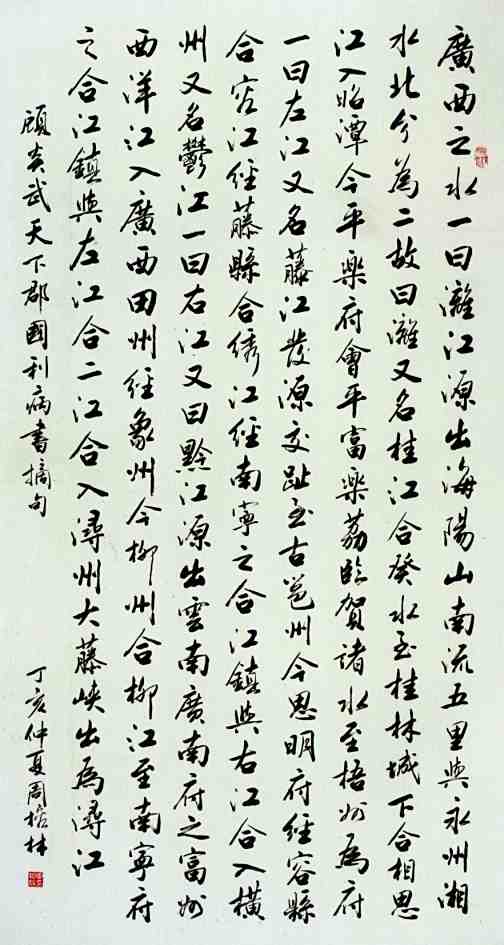 廣西之水一曰灕江源出海陽山南流五里與永州湘
水北分為二故曰灕又名桂江合癸水至桂林城下合相思
江入昭潭今平樂府會平富樂荔臨賀諸水至梧州為府
一曰左江又名藤江發源交趾至古邕州今思明府經容縣
合容江經藤縣合綉江經南寧之合江鎮與右江合入橫
州又名鬱江一曰右江又曰黔江源出雲南廣南府之富州
西洋江入廣西田州經象州今柳州合柳江至南寧府
之合江鎮與左江合二江合入潯州大藤峽出為潯江
顧炎武天下郡國利病書摘句
丁亥仲夏周 林